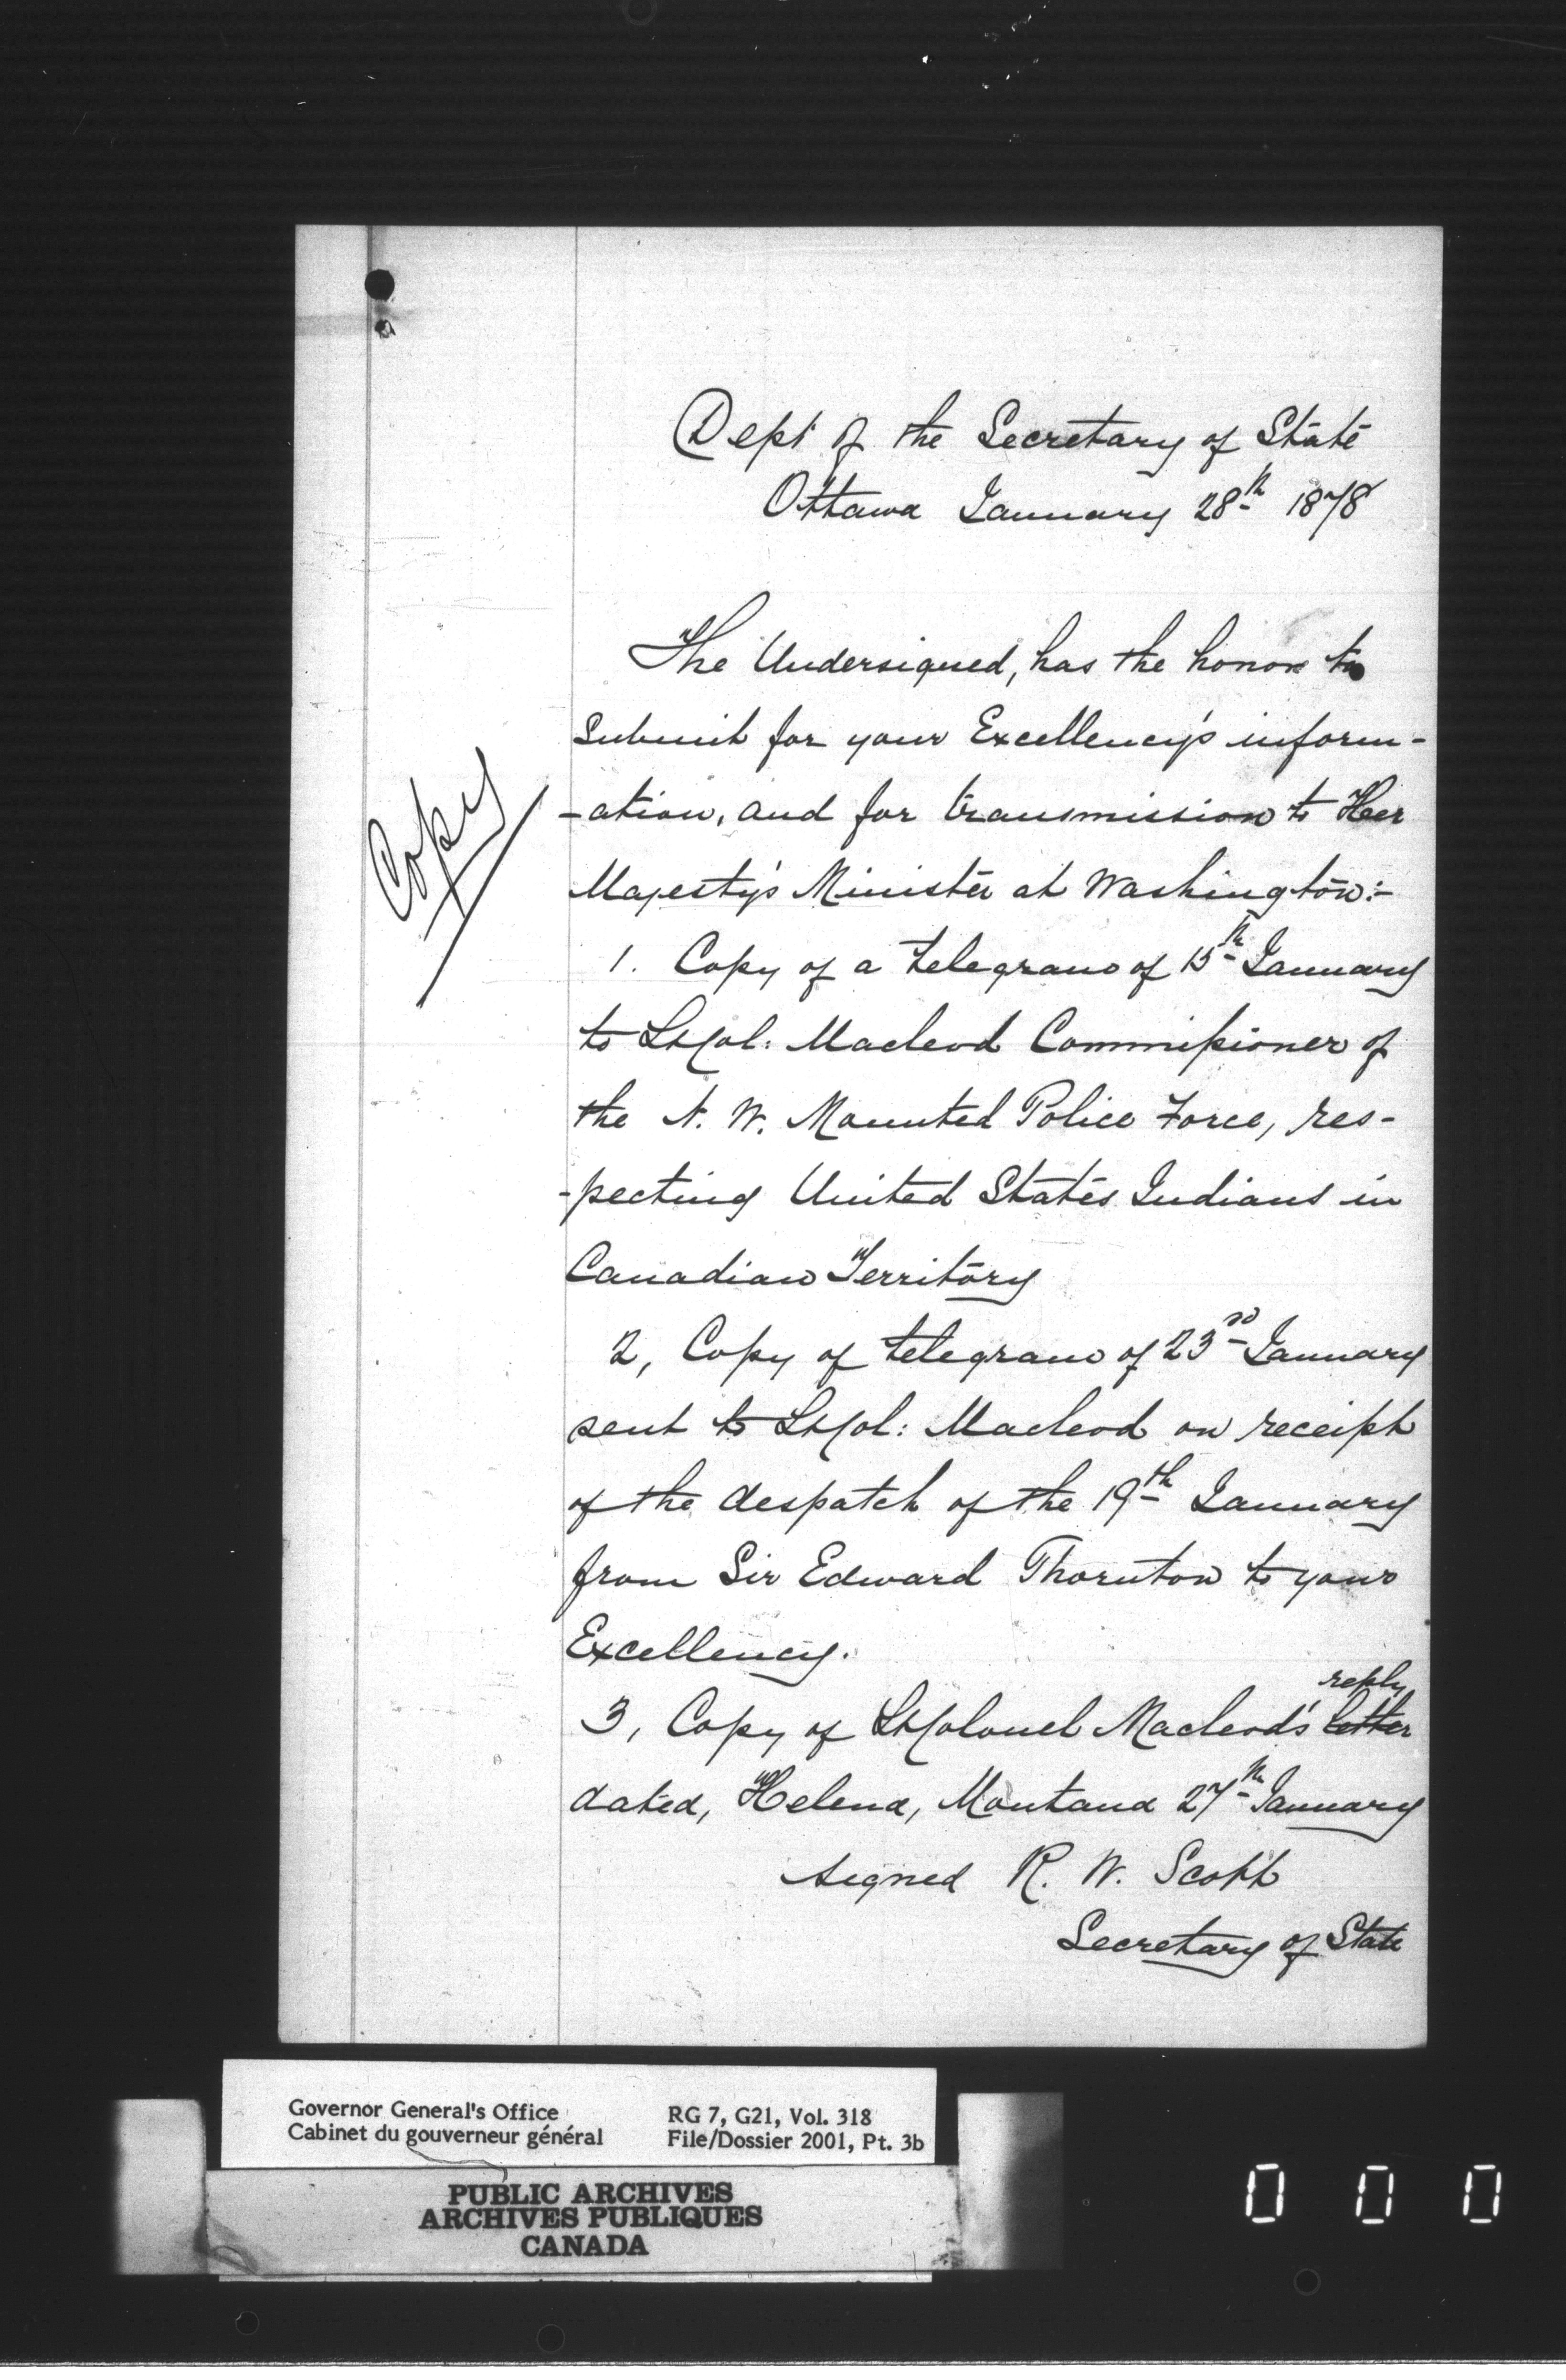 Dept of the Secretary of State
Ottawa January 28th 1878
Copy
The Undersigned, has the honor to
submit for your Excellency's inform-
-ation, and for transmission to Her
Majesty's Minister at Washington:-
1. Copy of a telegram of 15th January
to Lt Col: Macleod Commissioner of
the N. W. Mounted Police Force, res-
-pecting United States Indians in
Canadian Territory
2, Copy of telegram of 23rd January
sent to Lt Col: Macleod on receipt
of the despatch of the 19th January
from Sir Edward Thornton to your
Excellency.
reply
3, Copy of Lt Colonel Macleod's letter
dated, Helena, Montana 27th January
signed R. W. Scott
Secretary of State
Governor General's Office
Cabinet du gouverneur général
RG 7, G21, Vol. 318
File/Dossier 2001, Pt. 3b
PUBLIC ARCHIVES
ARCHIVES PUBLIQUES
CANADA
0 0 0